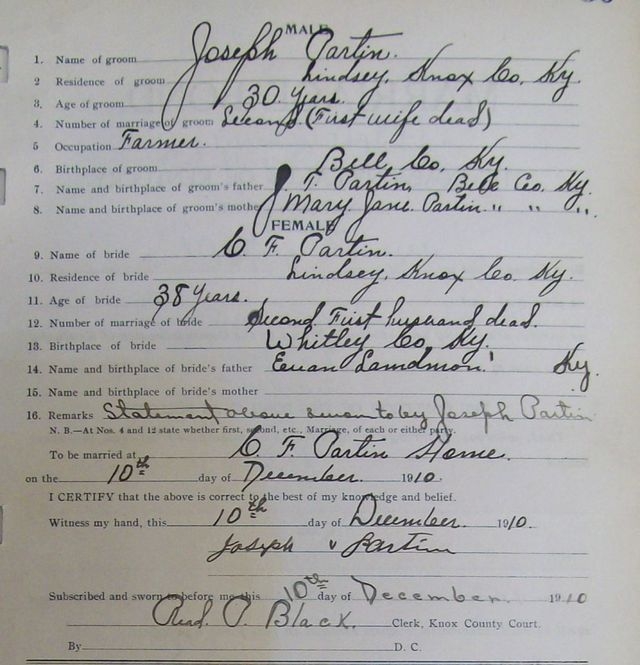 MALE
1. Name of groom Joseph Partin.
2 Residence of groom Lindsey, Knox Co, Ky.
3. Age of groom 30 Years.
4. Number of marriage of groom Second (First wife dead)
5 Occupation Farmer.
6. Birthplace of groom Bell Co, Ky.
7. Name and birthplace of groom's father T. Partin, Bell Co, Ky.
8. Name and birthplace of groom's mother Mary Jane Partin " " "
FEMALE
9. Name of bride C. F. Partin.
10. Residence of bride Lindsey, Knox Co Ky.
11. Age of bride 38 Years.
12. Number of marriage of bride Second First husband dead.
13. Birthplace of bride Whitley Co, Ky.
14. Name and birthplace of bride's father Ky.
15. Name and birthplace of bride's mother
16. Remarks Statement above sworn to by Joseph Partin
N. B.—At Nos. 4 and 12 state whether first, second, etc., Marriage, of each or either party.
To be married at C. F. Partin Home.
on the 10th day of December. 1910
I CERTIFY that the above is correct to the best of my knowledge and belief.
Witness my hand, this 10th day of December. 1910.
Joseph Partin
Subscribed and sworn to before me this 10th day of December. 1910
Read P. Black. Clerk, Knox County Court.
By D. C.